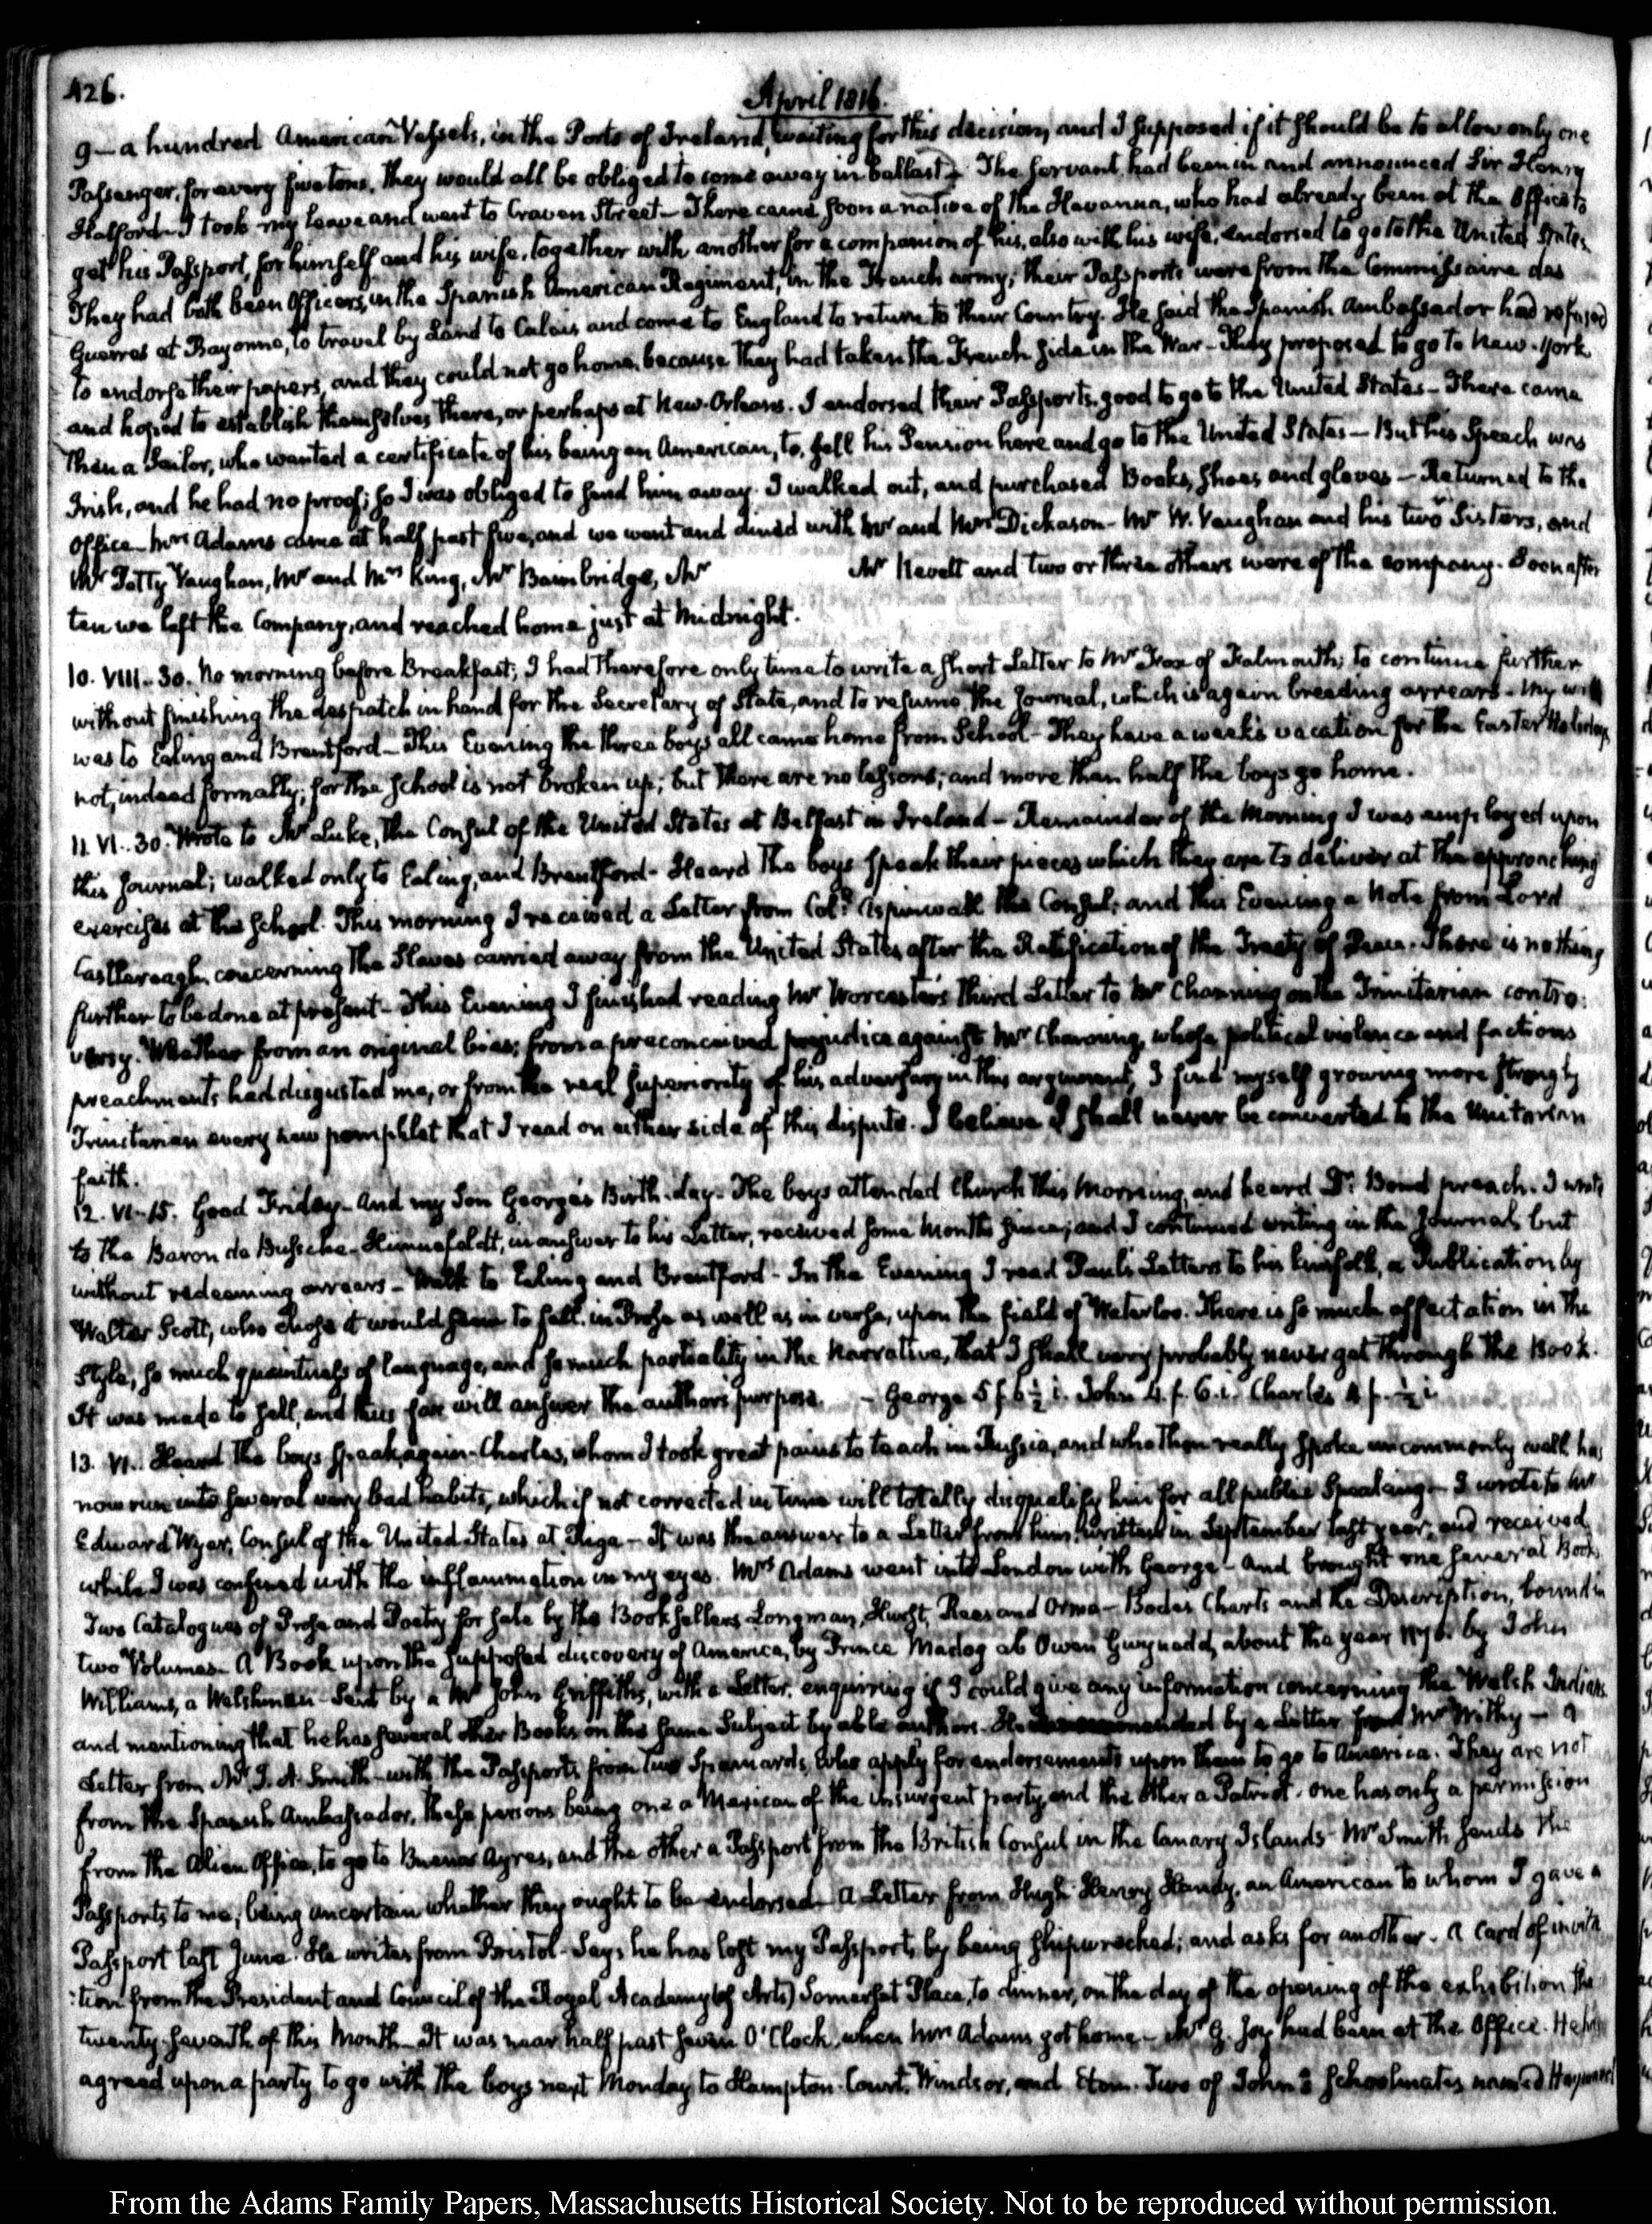 426.
April 1816.
9 — a hundred American Vessels, in the Ports of Ireland, waiting for this decision, and I supposed if it should be to allow only one
Passenger, for every five tons, they would all be obliged to come away in ballast. The servant, had been in and announced Sir Henry
Halford. I took my leave and went to Craven Street — There came soon a native of the Havanna, who had already been at the Office to
get his Passport, for himself and his wife, together with another for a companion of his, also with his wife, endorsed to go to the United States.
They had both been Officers, in the Spanish American Regiment, in the French army; their Passports were from the Commissaire des
Guerres at Bayonne, to travel by Land to Calais and come to England to return to their Country. He said the Spanish Ambassador had refused
to endorse their papers, and they could not go home, because they had taken the French side in the War — They proposed to go to New-York
and hoped to establish themselves there, or perhaps at New-Orleans. I endorsed their Passports, good to go to the United States — There came
then a Sailor, who wanted a certificate of his being an American, to sell his Pension here and go to the United States — But his Speech was
Irish, and he had no proof; so I was obliged to send him away. I walked out, and purchased Books, Shoes and gloves — Returned to the
Office — Mrs Adams came at half past five, and we went and dined with Mr and Mrs Dickason — Mr W. Vaughan and his two Sisters, and
Mr Petty Vaughan, Mr and Mrs King, Mr Bainbridge, Mr Mr Kevett and two or three others were of the company. Soon after
ten we left the Company, and reached home just at Midnight.
10. VIII.. 30. No morning before Breakfast; I had therefore only time to write a short Letter to Mr Fox of Falmouth; to continue further
without finishing the despatch in hand for the Secretary of State, and to resume the Journal, which is again breeding arrears — My walk
was to Ealing and Brentford — This Evening the three boys all came home from School — They have a week's vacation for the Easter Holidays
not, indeed formally; for the School is not broken up; but there are no lessons; and more than half the boys go home.
11. VI.. 30. Wrote to Mr Luke, the Consul of the United States at Belfast in Ireland — Remainder of the Morning I was employed upon
this Journal; walked only to Ealing, and Brentford — Heard the boys speak their pieces which they are to deliver at the approaching
exercises at the School. This morning I received a Letter from Coll Aspinwall the Consul; and this Evening a Note from Lord
Castlereagh concerning the Slaves carried away from the United States after the Ratification of the Treaty of Peace. There is nothing
further to be done at present — This Evening I finished reading Mr Worcester's third Letter to Mr Channing on the Trinitarian contro:
versy. Whether from an original bias; from a preconceived prejudice against Mr Channing, whose political violence and factious
preachments had disgusted me, or from the real superiority of his adversary in this argument, I find myself growing more strongly
Trinitarian every new pamphlet that I read on either side of this dispute. I believe I shall never be converted to the Unitarian
faith.
12. VI.. 15. Good Friday — And my Son George's Birth-day — The boys attended Church this Morning, and heard Dr. Bond preach. I wrote
to the Baron de Bussche-Hunnefeldt, in answer to his Letter, received some Months since; and I continued writing in the Journal; but
without redeeming arrears — Walk to Ealing and Brentford — In the Evening I read Paul's Letters to his kinsfolk, a Publication by
Walter Scott, who chose it would seem to fall, in Prose as well as in verse, upon the field of Waterloo. There is so much affectation in the
Style, so much quaintness of language, and so much partiality in the Narrative, that I shall very probably never get through the Book.
It was made to sell, and thus far will answer the author's purpose. — George 5 f 6½ i. John 4. f. 6. i. Charles 4 f. — ½ i.
13. VI.. Heard the boys speak, again — Charles, whom I took great pains to teach in Russia, and who then really spoke uncommonly well has
now run into several very bad habits, which if not corrected in time will totally disqualify him for all public Speaking — I wrote to Mr
Edward Wyer, Consul of the United States at Riga — It was the answer to a Letter from him, written in September last year; and received
while I was confined with the inflammation in my eyes. Mrs Adams went into London with George — and brought me several Books
Two Catalogues of Prose and Poetry for sale by the Booksellers Longman, Hurst, Rees and Orme — Bode's Charts and the Description, bound in
two Volumes. A Book upon the supposed discovery of America, by Prince Madog ab Owen Gwynedd, about the year by John
Williams, a Welshman — Sent by a Mr John Griffiths, with a Letter, enquiring if I could give any information concerning the Welsh Indians
and mentioning that he has several other Books on the same Subject by able authors. He recommended by a Letter from Mr Withy — a
Letter from Mr J. A. Smith with the Passports from two Spaniards, who apply for endorsements upon them to go to America. They are not
from the Spanish Ambassador, these persons being one a Mexican of the insurgent party, and the other a Patriot. one has only a permission
from the Alien Office, to go to Buenos Ayres, and the other a Passport from the British Consul in the Canary Islands — Mr Smith sends the
Passports to me; being uncertain whether they ought to be endorsed — A Letter from Hugh Henry Handy, an American to whom I gave a
Passport last June. He writes from Bristol — Says he has lost my Passport, by being shipwrecked; and asks for another. A card of invita
:tion from the President and Council of the Royal Academy (of Arts) Somerset Place, to dinner, on the day of the opening of the exhibition the
twenty-seventh of this Month — It was near half past seven O'Clock, when Mrs Adams got home — Mr G. Joy had been at the Office. He has
agreed upon a party to go with the boys next Monday to Hampton-Court, Windsor, and Eton. Two of John's Schoolmates, named Hayward
From the Adams Family Papers, Massachusetts Historical Society. Not to be reproduced without permission.